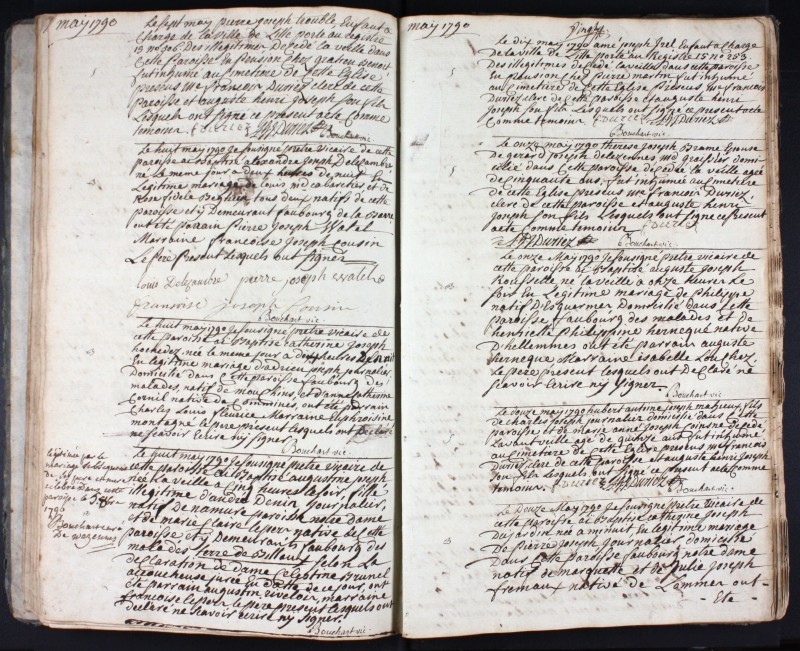 may 1790
Le sept may pierre joseph Enfant a
Charge de la ville de Lille porté au registre
13 no 906 Des illegitimes Decedé la veille dans
Cette paroisse En pension chez gratien
fut inhumé au Cimetiere de Cette Eglise
presens mr francois Duriez clerc de cette
paroisse et auguste henri joseph son fils
Lesquels ont signé ce present acte Comme
temoins Duriez Duriez
Bouchart vic:
Le huit may 1790 je soussigné prêtre vicaire de cette
paroisse ai Baptisé alexandre joseph
né le meme jour a deux heures de nuit En
Legitime mariage de Louis md cabaretier et de
Rose fidele Beghein tous deux natifs de cette
paroisse et y Demeurant faubourg de la Barre
ont été parain pierre joseph Watel
Marraine francoise joseph Cousin
Le pere present lesquels ont signer
Louis pierre joseph watel
francoise joseph Cousin
Bouchart vic:
Le huit may 1790 je soussigné prêtre vicaire de
cette paroisse ai Baptisé catherine joseph
née le meme jour a deux heures De nuit
En legitime mariage d'adrien joseph journalier
Domicilié dans Cette paroisse faubourg des
malades, natif de mouchins, et d'anne catherine
Cornil native de Commines, ont été parrain
Charles Louis Marraine Euphroisine
montagne le pere present lesquels ont Declaré
ne scavoir Ecrire ny signer
Bouchart vic:
Le huit may 1790 je soussigné prêtre vicaire de
cette paroisse ai Baptisé augustine joseph
née La veille a cinq heures du soir, fille
illegitime d'andré Denin journalier,
natif de Namure paroisse notre Dame
et de marie claire lepers native de cette
paroisse et y Demeurant faubourg des
malades Selon La
declaration de dame Celestine Brunel
accoucheuse jurée En datte de ce jour, ont
eté parrain augustin marraine
francoise lepers le pere present lesquels ont
declaré ne scavoir Ecrire ny signer
Bouchart vic:
legitimée par le
mariage
celebré dans cette
paroisse le
1790
Bouchart curé
de wazemmes
may 1790
Vingt
Le dix may 1790 amé joseph Enfant a Charge
De la ville de Lille porté au Registre 15 no 253
Des illegitimes decedé la veille dans cette paroisse
En pension chez pierre martin fut inhumé
au Cimetiere de cette Eglise presens mr francois
Duriez clerc de Cette paroisse et auguste henri
joseph son fils Lesquels ont signé ce present acte
Comme temoins Duriez Duriez
Bouchart vic:
Le onze may 1790 therese joseph Brame Epouse
De gerard joseph delezennes md graissier domi-
cilié dans Cette paroisse decedée la veille agée
de cinquante ans, fut inhumée au Cimetiere
de cette Eglise presens mr francois Duriez
clerc de Cette paroisse et auguste henri
joseph son fils Lesquels ont signé ce present
acte Comme temoins Duriez
Duriez
Bouchart vic:
Le onze may 1790 je soussigné prêtre vicaire de
cette paroisse ai Baptisé auguste joseph
Rousselle né la veille a onze heures du
soir En Legitime mariage de philippe
natif D'Esquermes Domicilié dans cette
paroisse faubourg des malades et de
henriette philippine herneque native
d'hellemmes ont été parrain auguste
herneque Marraine isabelle
Le pere present lesquels ont Declaré ne
scavoir Ecrire ny signer.
Bouchart vic:
Le douze may 1790 hubert antoine joseph fils
de charles joseph journalier domicilié dans cette
paroisse et de marie anne joseph decedé
La avant veille agé de quinze ans fut inhumé
au Cimetiere de cette Eglise presens mr francois
Duriez clerc de cette paroisse et auguste henri joseph
son fils lesquels ont signé ce present acte Comme
temoins. Duriez Duriez
Bouchart vic:
Le Douze May 1790 je soussigné prêtre vicaire de
cette paroisse ai Baptisé Catherine joseph
Dujardin née a minuit En legitime mariage
De pierre joseph journalier domicilié
Dans Cette paroisse faubourg notre dame
natif de marquette et de julie joseph
fremaux native de Lommes ont-
- Eté -